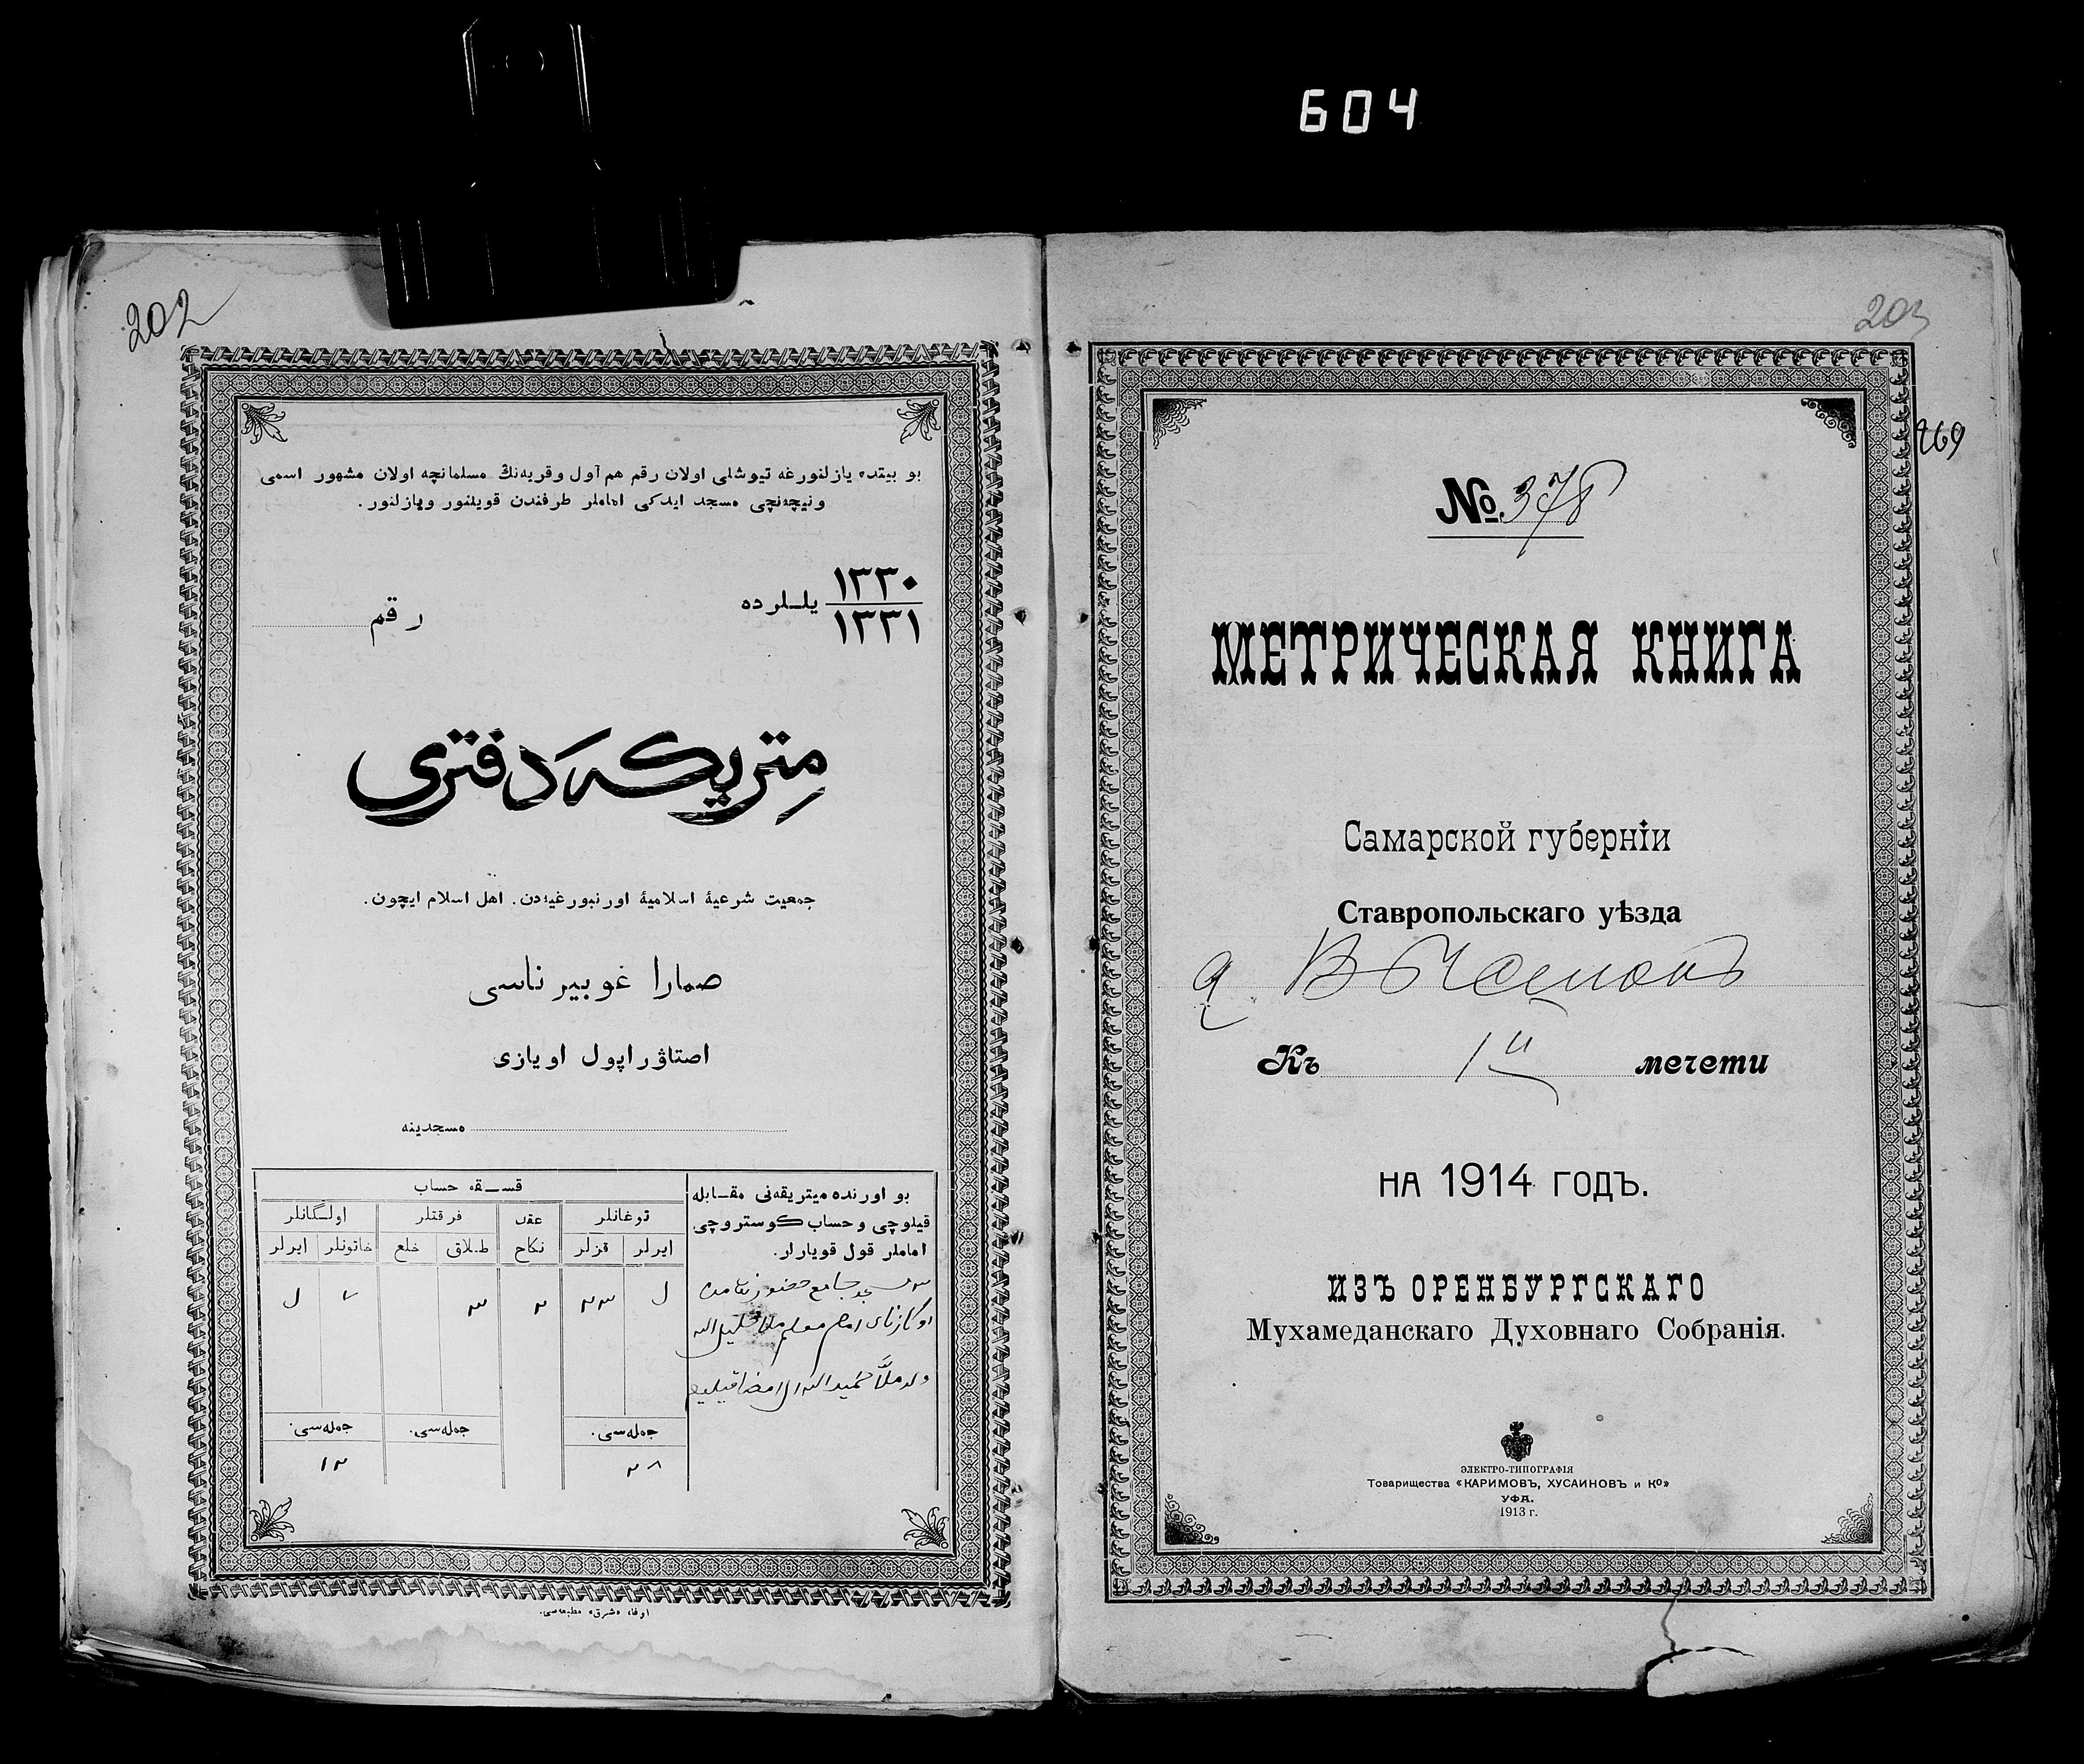 604
202
بو بيتده يازلنورغه تيوشلى اولان رقم هم آول وقريه‌نڭ مسلمانچه اولان مشهور اسمى
ونيچه‌نچى مسجد ايدكى اماملر طرفندن قويلنور ويازلنور.
١٣٣٠
١٣٣١
يللرده
رقم
متريكه دفترى
جمعيت شرعيهٔ اسلاميهٔ اورنبورغيه‌دن. اهل اسلام ايچون.
صمارا غوبيرناسى
اصتاۋراپول اويازى
مسجدينه
قسقه حساب
توغانلر
عقد
فرقتلر
اولگانلر
ايرلر
قزلر
نكاح
طلاق
خلع
خاتونلر
ايرلر
٢
٣
جمله‌سى.
جمله‌سى.
جمله‌سى.
٢٨
١٢
بو اورنده ميتريقه‌نى مقابله
قيلوچى وحساب كوستروچى
اماملر قول قويارلر.
اوفا، «شرق» مطبعه‌سى.
203
269
№ 378
МЕТРИЧЕСКАЯ КНИГА
Самарской губернiи
Ставропольскаго уѣзда
д
Къ 1й мечети
НА 1914 ГОДЪ.
ИЗЪ ОРЕНБУРГСКАГО
Мухамеданскаго Духовнаго Собранiя.
ЭЛЕКТРО-ТИПОГРАФIЯ
Товарищества «КАРИМОВЪ, ХУСАИНОВЪ и Ко»
УФА.
1913 г.